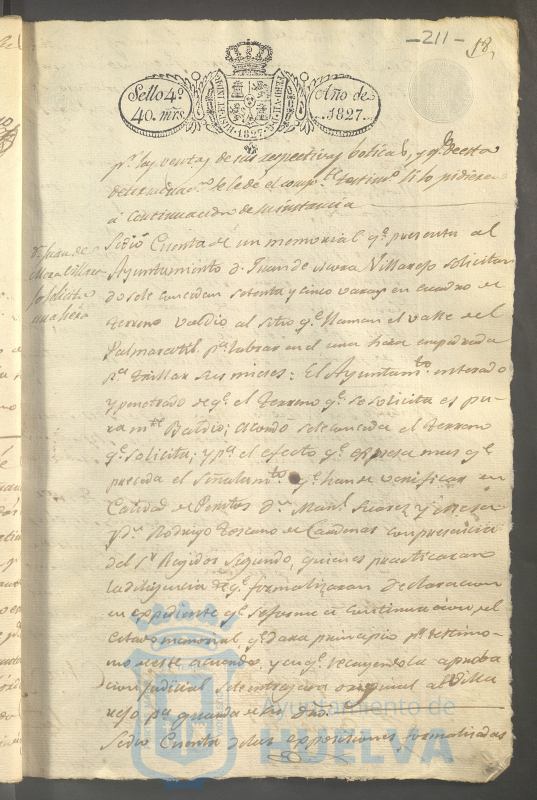 -211-
18,
Sello 4º
40. mrs.
Año de
1827.
pª las ventas de sus respectivas boticas, y qe. de esta
determinacn. se le dé el compte. testimo. si lo pidiere
á continuacion de su instancia
Dn. Juan de
Mora Villarejo
solicita
una hera
Se dió Cuenta de un memorial qe. presenta al
Ayuntamiento dn. Juan de Mora Villarejo solicitan
do se le concedan setenta y cinco varas en cuadro de
terreno valdio al sitio qe. llaman el valle del
pª labrar en el una hera empedrada
pª trillar sus mieses: El Ayuntamto. enterado
y penetrado de qe. el terreno qe. se solicita es pu-
ramte. Baldio; Acordó se le conceda el terreno
qe. solicita; y pª el efecto qe. espresa mas qe.
preceda el señalamto. qe. han de verificar en
Calidad de Peritos Dn. Manl. Suarez y
Dn. Rodrigo Toscano de Cardenas con presencia
del Sr. Regidor Segundo, quienes practicaran
la diligencia de qe. formalizaran Declaracion
en expediente qe. se forme á continuacion del
Citado memorial qe. dara principio pr. testimo-
nio de este acuerdo, y en qe. recayendo la aproba
cion judicial se le entregara original al Villa
rejo pª guarda de su dro.
Se dió Cuenta de las exposiciones formalizadas
Ayuntamiento de
HUELVA